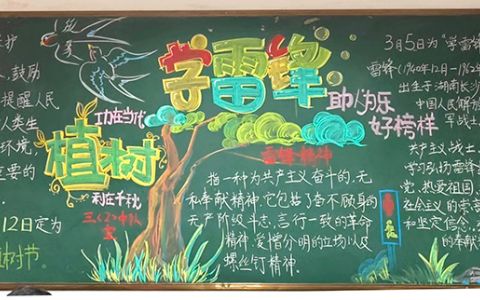 护
鼓励
提醒人民
人类生
环境,
要的
12日定为
植树节.
功在当代
植树
利在千秋
三(2)中队
宣
学雷锋
助人为乐
好榜样
雷锋精神
指一种为共产主义奋斗的,无
和奉献精神,它包括了奋不顾身的
无产阶级斗志,言行一致的革命
精神,爱憎分明的立场以及
螺丝钉精神.
3月5日为"学雷锋
雷锋(1940年12月—1962
出生于湖南长沙
中国人民解放
军战士
共产主义战士
学习弘扬雷锋
党,热爱祖国
在公主义的崇高
和坚定信念,
的奉献